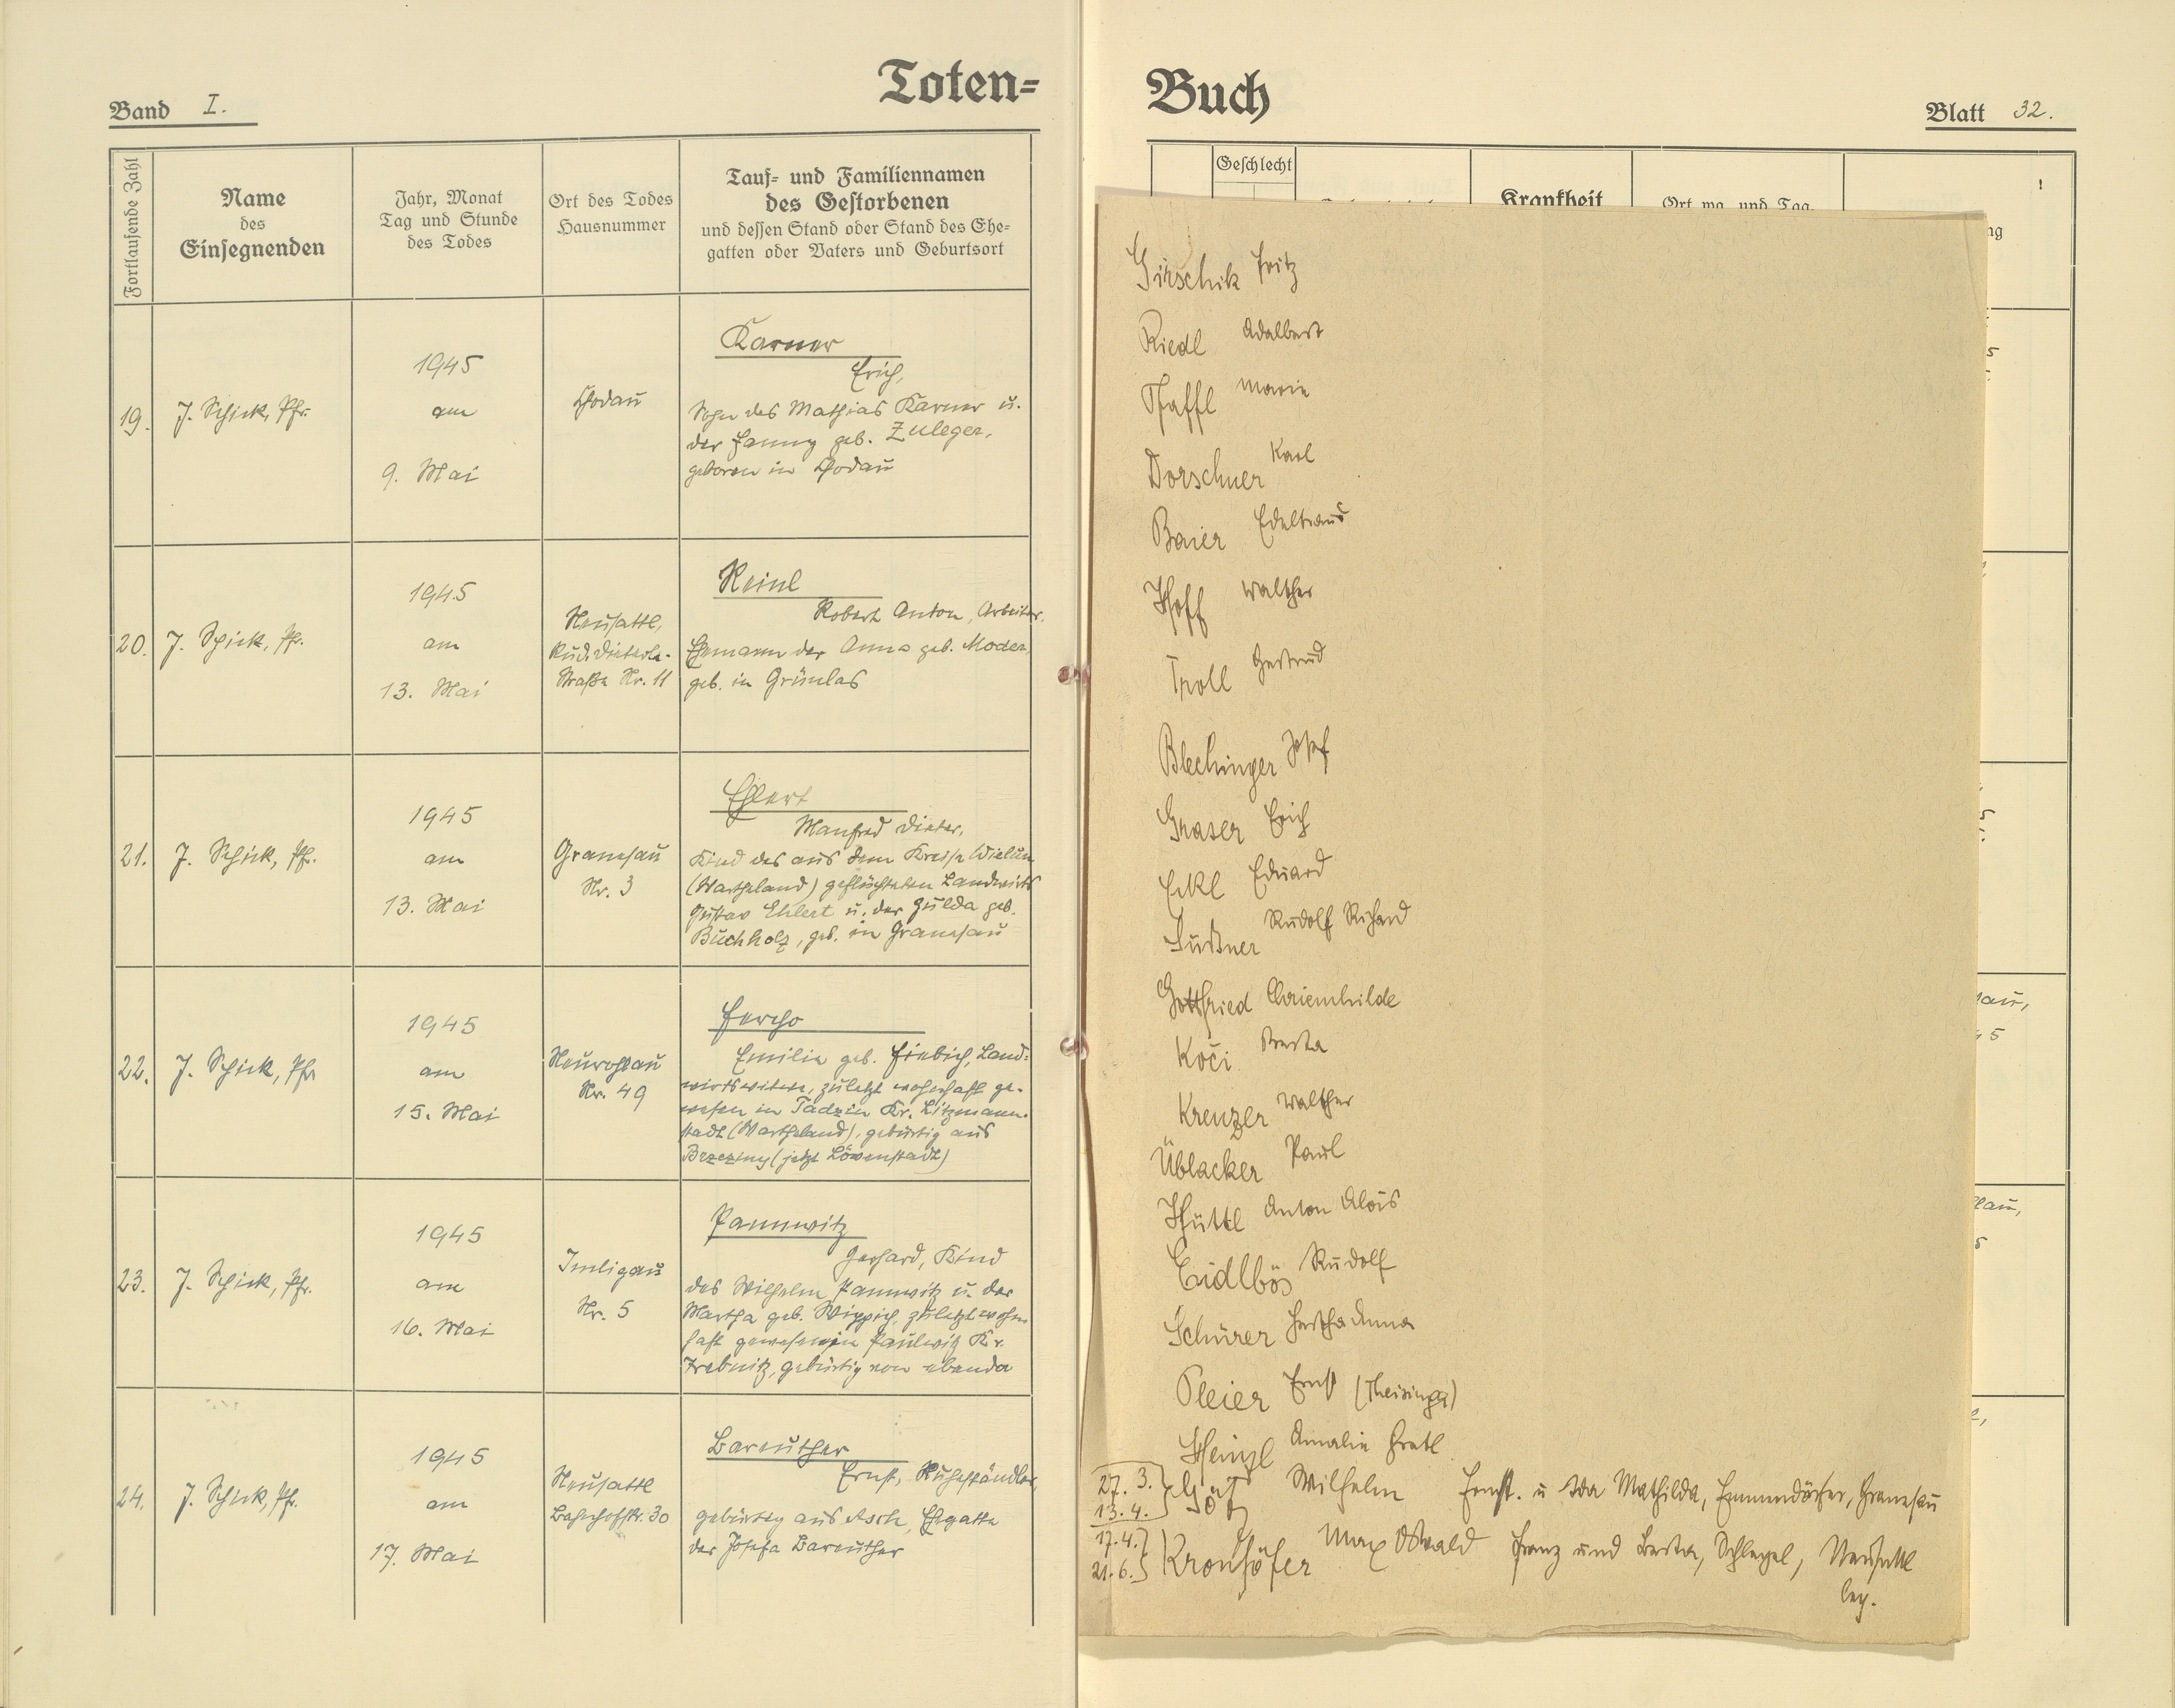 Toten=
Band I.
Fortlaufende Zahl
Name
des
Einsegnenden
Jahr, Monat
Tag und Stunde
des Todes
Ort des Todes
Hausnummer
Tauf= und Familiennamen
des Gestorbenen
und dessen Stand oder Stand des Ehe=
gatten oder Vaters und Geburtsort
19.
J. Schick, Pfr.
1945
am
9. Mai
Chodau
Karner
Erich,
Sohn des Mathias Karner u.
der Fanny geb. Zuleger,
geboren in Chodau
20.
J. Schick, Pfr.
1945
am
13. Mai
Neusattl,
Rud. Dieterle-
Straße Nr. 11
Reinl
Robert Anton, Arbeiter,
Ehemann der Anna geb. Moder,
geb. in Grünlas
21.
J. Schick, Pfr.
1945
am
13. Mai
Granesau
Nr. 3
Ehlert
Manfred Dieter,
Kind des aus dem Kreise Wielun
(Wartheland) geflüchteten Landwirts
Gustav Ehlert u. der Hulda geb.
Buchholz, geb. in Granesau
22.
J. Schick, Pfr
1945
am
15. Mai
Neurohlau
Nr. 49
Fercho
Emilie geb. Fiebich, Land=
wirtswitwe, zuletzt wohnhaft ge-
wesen in Tadzin Kr. Litzmann-
stadt (Wartheland), gebürtig aus
Brzeziny (jetzt Löwenstadt)
23.
J. Schick, Pfr.
1945
am
16. Mai
Imligau
Nr. 5
Pannwitz
Gerhard, Kind
des Wilhelm Pannwitz u. der
Martha geb. Wippich, zuletzt wohn
haft gewesen in Paulwitz Kr.
Trebnitz, gebürtig von ebenda
24.
J. Schick, Pfr.
1945
am
17. Mai
Neusattl
Bahnhofstr. 30
Bareuther
Ernst, Ruheständler,
gebürtig aus Asch, Ehegatte
der Josefa Bareuther
Buch
Blatt 32.
Geschlecht
Krankheit
Ort wo, und Tag,
ng
Girschik Fritz
Riedl Adalbert
Pfaffl Marie
Dorschner Karl
Baier Edeltraud
Hoff Walther
Troll Gertrud
Blechinger Josef
Graser Erich
Eckl Eduard
Süßner Rudolf Richard
Gottfried Chriemhilde
Koči Berta
Kreuzer Walther
Üblacker Paul
Hüttl Anton Alois
Eidlbös Rudolf
Schürer Hertha Anna
Pleier Ernst (Theisinger)
Heinzl Amalie Gretl
27. 3.
13. 4.
Götz Wilhelm Ernst. u Ida Mathilda, Emmendörfer, Granesau
17. 4.
21. 6.
Kronhöfer Max Oswald Franz und Berta, Schlegel, Neusattl